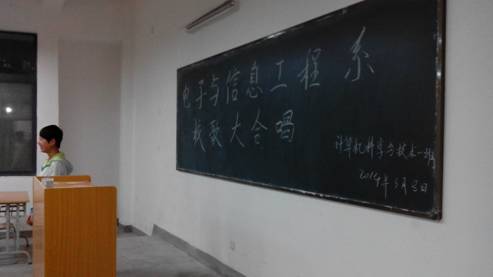 电子与信息工程系
校歌大合唱
计算机科学与技术一班
2014年3月3日